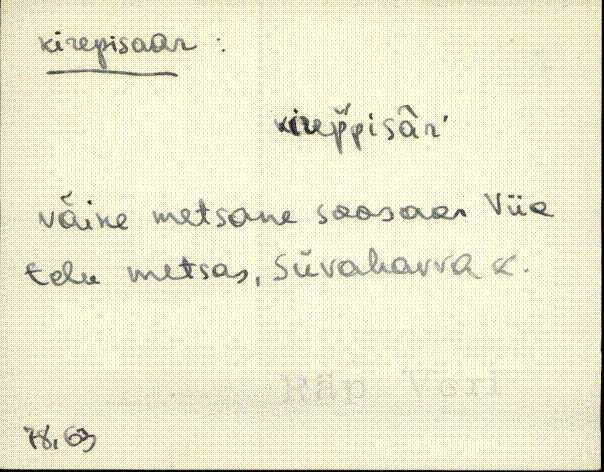 kirepisaar :
kirep̆pisâŕ
väike metsane soosaar Viie
talu metsas, Süvahavva k.
Räp Veri